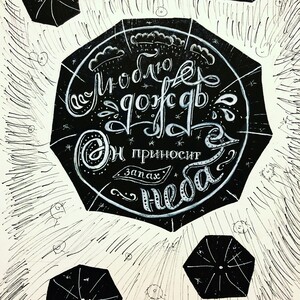 Люблю
дождь
Он приносит
запах
неба